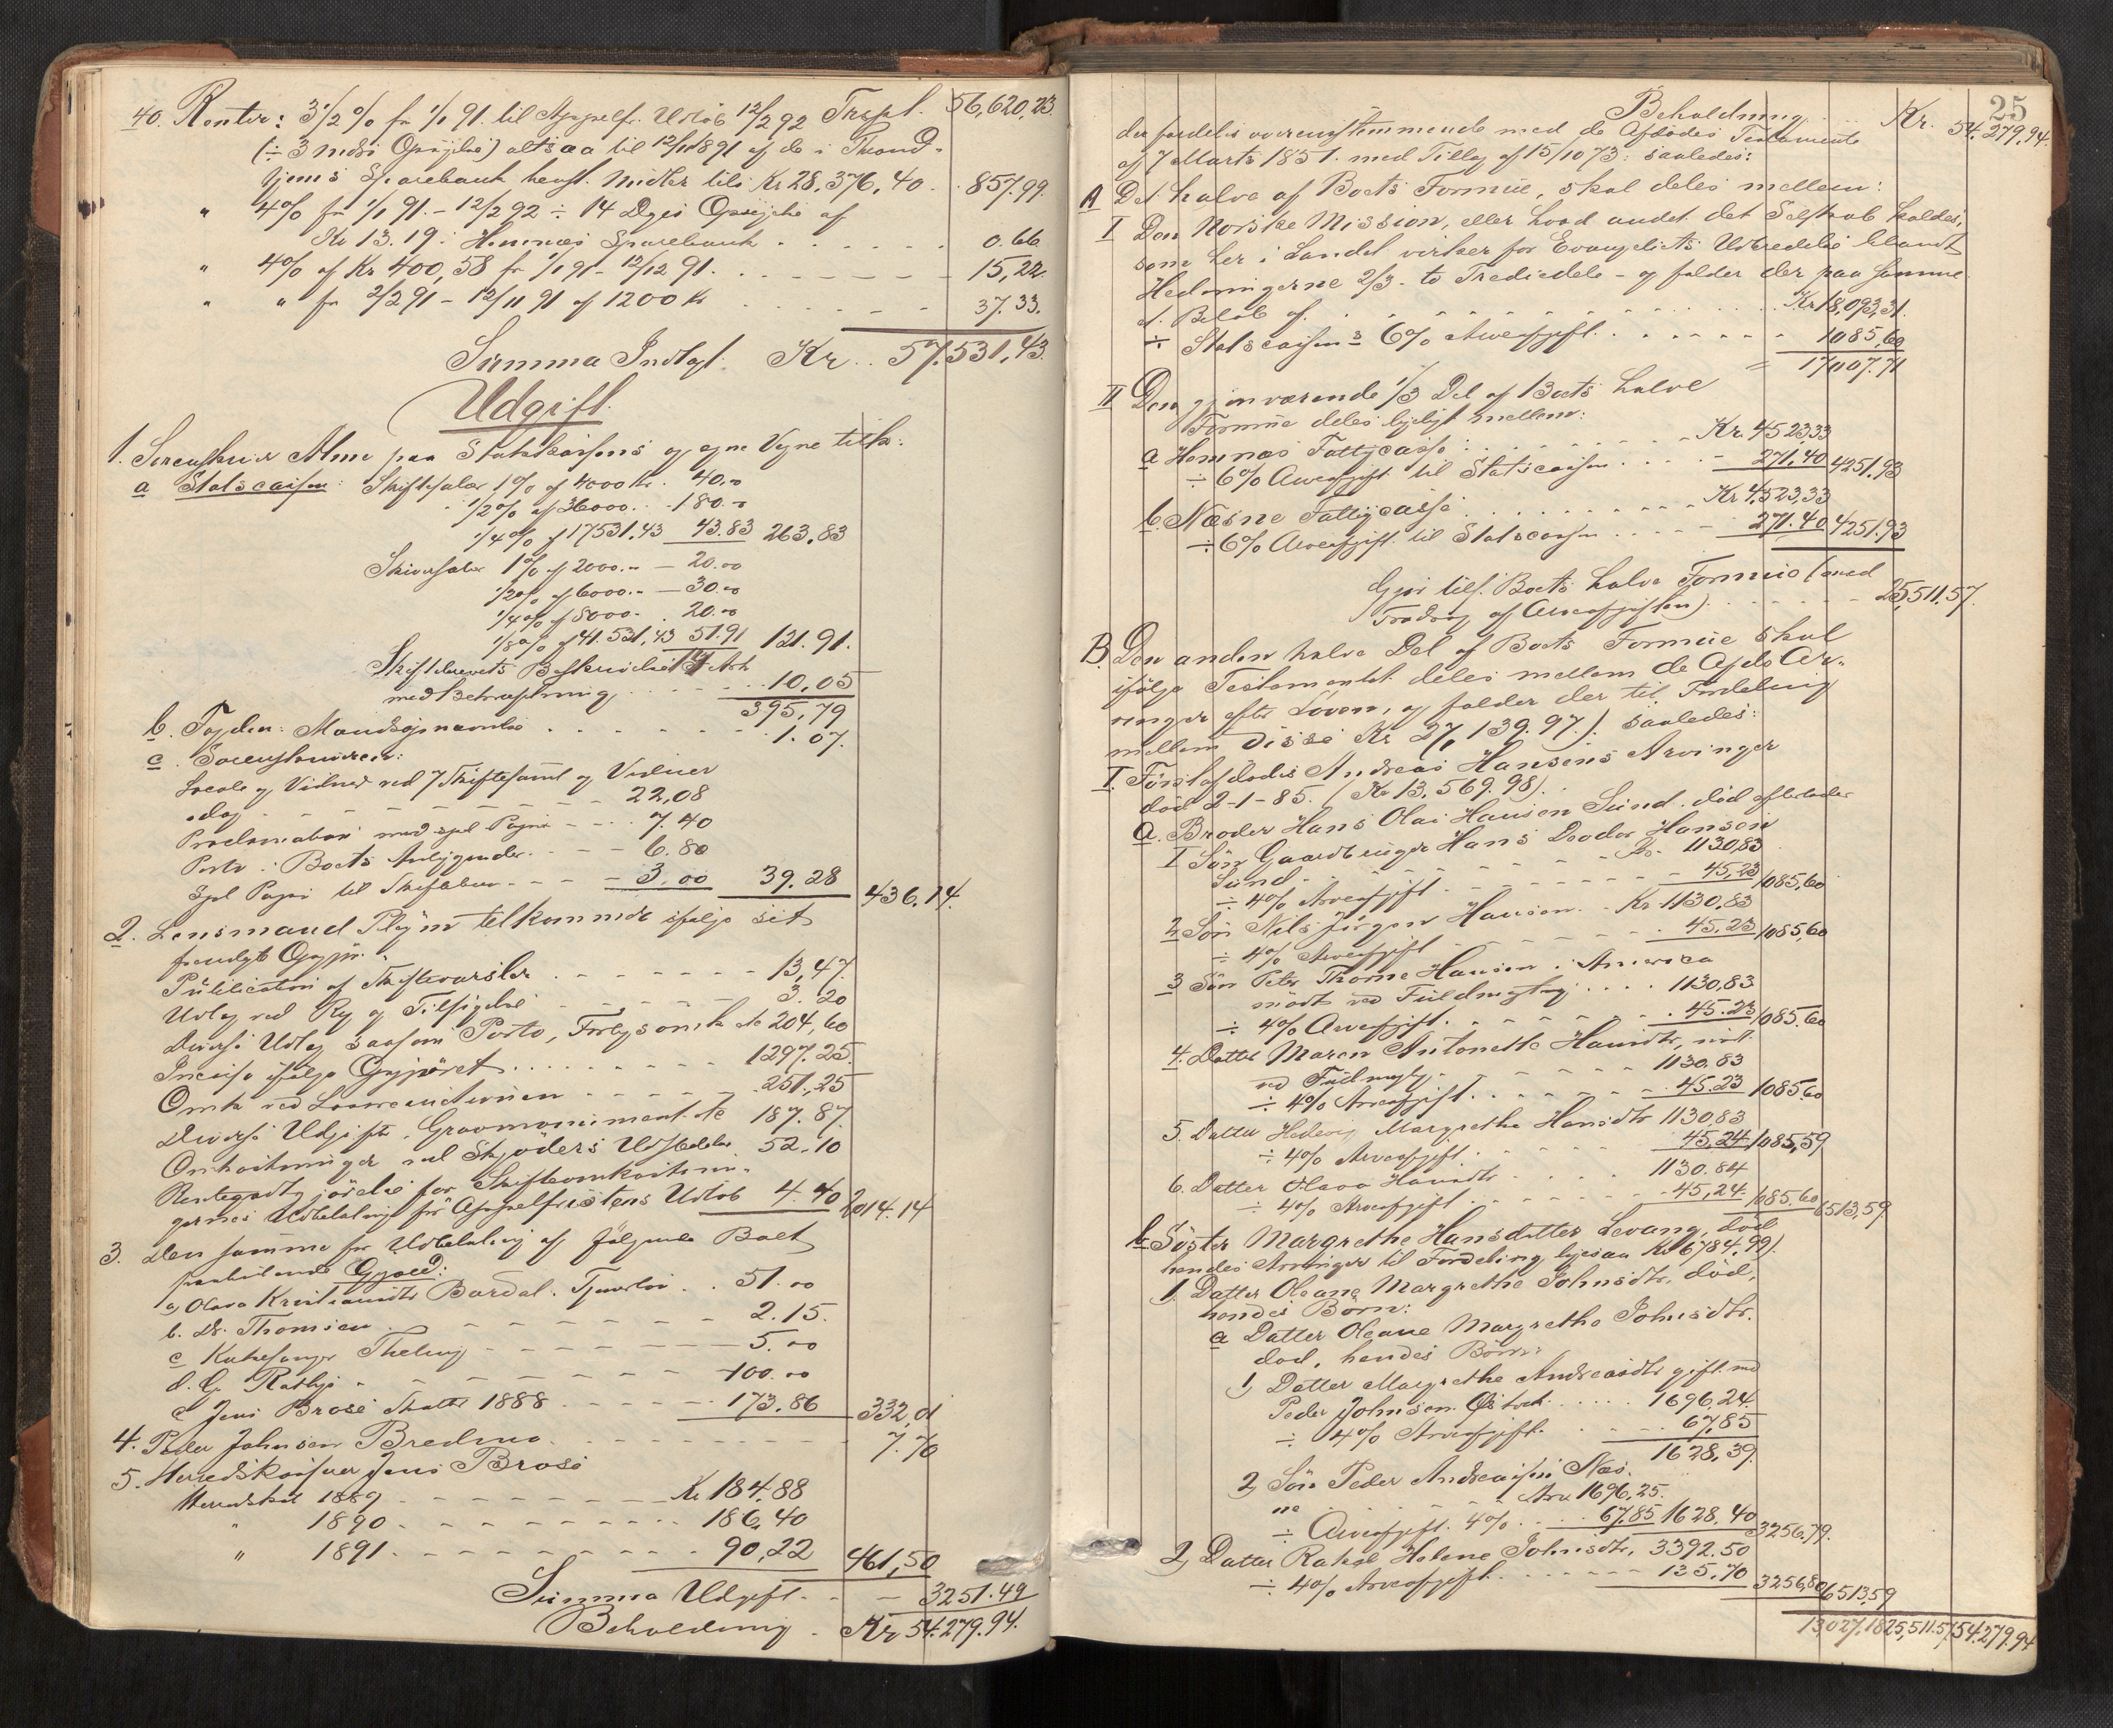 40. Renter: 3 1/2 % fr 1/1 91. til Appelfr. Udløb 12/2 92 Trspt. 56,620,23
(÷ 3 mdrs Opsigelse) altsaa til 12/11 1891 af de i Thrond-
hjems Sparebank henst. Midler tils Kr 28,376,40 . 857.99.
" 4% fr 1/1 91. – 12/2 92 ÷ 14 Dges Opsigelse af
Kr 13.19 i Hemnæs Sparebank . . . . . . 0.66
" 4% af Kr 400,58 fr 1/1 91 – 12/12 91. 15,22.
" " fr 2/2 91 – 12/11 91 af 1200 Kr 37.33.
Summa Indtgt. Kr.. 57.531,43.
Udgift.
1. Sorenskriver Alme paa Statskassens og egne Vegne tilk:
a Statscassen: Skiftesalær 1% af 4000 Kr. 40.00
1/2 % af 36000. . 180.00
1/4 % af 17531.43 43.83 263,83
Skriversalær 1% af 2000.. – 20.00
1/2 % af 6000.. – 30.00
1/4 % af 8000. . 20.00
1/8 % af 41.531,43 51.91 121.91.
Skiftebrevets Beskrivelse 17 Ark
med Bekræftning . . . . 10,05
395,79
b. Fogden: Mandsopnævnelse . . . . . 1.07.
c. Sorenskriveren:
Locale og Vidner ved 7 Skiftesaml og Vidner
idag 22,08
Proclamation med spl Papir – – – 7.40
Porto i Boets Anliggender. – – – 6.80
Spl Papir til Skiftebrev – – – 3,00 39.28 436.14.
2. Lensmand Pleym tilkommer ifølge sit
fremlgt Opgjør.
Publication af Skiftevarsler 13,47.
Udlæg ved Reg og Tilsigelse 3.20
Diverse Udlæg saasom Porto, Forlysomk etc 204,60
Incasso ifølge Opgjøret . . . . . . . 1297.25.
Omk ved Løsøreauctionen 251,25
Diverse Udgifter, Gravmonument etc 187.87.
Omkostninger ved Skjøders Udstedelse 52.10
Rentegodtgjørelse for Skifteomkostnin-
gernes Udbetaling før Appelfristens Udløb 4.40 2014.14
3. Den samme for Udbetaling af følgende Boet
paahvilende Gjæld:
a, Olava Kristiansdtr Bardal. Tjenerløn . 51.00
b. Dr. Thomsen 2.15.
c Kirkesanger 5.00
d. G. 100.00
e Jens Brose Skatt 1888 173.86 332,01
4. Peder Johnsen Bredmo 7.70
5. Herredskasserer Jens Brose
Herredskat 1889 Kr 184.88
" 1890 186,40
" 1891 90,22 461,50
Summa Udgift . . 3251.49
Beholdning . Kr 54.279.94.
25
Beholdning . . . Kr. 54.279.94.
der fordeles overensstemmende med de Afdødes Testamente
af 7 Marts 1851. med Tillæg af 15/10 73: saaledes:
A Det halve af Boets Formue, skal deles mellem:
I Den Norske Mission, eller hvad andet det Selskab kaldes,
som her i Landet virker for Evangeliets Udbredelse blandt
Hedningerne 2/3 - to Trediedele - og falder der paa samme
et Beløb af . . . Kr 18,093,31.
÷ Statscassens 6% Arveafgift . . . . . . 1085,60
= 17007.71
II Den gjenværende 1/3 Del af Boets halve
Formue deles ligeligt mellem:
a Hemnæs Fattigcasse: . . . . . Kr. 4523,33
÷ 6% Arveafgift til Statscassen . . . . 271,40 4251.93
b. Næsne Fattigcasse . . . . . . Kr 4,523,33
÷ 6% Arveafgift til Statscassen . . . 271.40 4251.93
Gjør tils. Boets halve Formue (med
Fradrag af Arveafgiften) . . . . . . 25,511.57.
B. Den anden halve Del af Boets Formue skal
ifølge Testamentet deles mellem de Afdø Ar-
vinger efter Loven, og falder der til Fordeling
mellem disse Kr 27,139.97.) saaledes:
I. Førstafdødes Andreas Hansens Arvinger
død 2-1-85. (Kr 13,569.98).
a. Broder Hans Olai Hansen Sund. død efterlader
1 Søn Gaardbruger Hans Deodor Hansen
Sund . . . . Kr. 1130,83
÷ 4% Arveafgift . . . . . 45,23 1085,60
2 Søn Nils Jørgen Hansen . . Kr. 1130,83
÷ 4% Arveafgift . . . . 45,23 1085,60
3 Søn Peter Thorne Hansen i America
mødt ved Fuldmægtig . . . . 1130,83
÷ 4% Arveafgift . . . . . . 45.23 1085.60
4. Datter Maren Antonette Hansdtr, mødt
ved Fuldmægtig 1130,83
÷ 4% Arveafgift . . . . . 45.23 1085.60
5. Datter Hedevig Margrethe Hansdtr 1130,83
÷ 4% Arveafgift . . . . 45,24 1085,59
6. Datter Olava Hansdtr . . . 1130.84
÷ 4% Arveafgift . . . . . 45,24. 1085.60 6513,59
b. Søster Margrethe Hansdatter Levang, død
hendes Arvinger til Fordeling ligesaa Kr 6784,99).
1. Datter Oleane Margrethe Johnsdtr. død,
hendes Børn:
a Datter Oleane Margrethe Johnsdtr.
død, hendes Børn:
1, Datter Margrethe Andreasdtr gift med
Peder Johnsen . . . . 1696,24.
÷ 4% Arveafgift . . . . 67,85
1628,39.
2, Søn Peder Andreassen Næs-
ne . . . . . Arv 1696,25.
÷ Arveafgift. 4% . . . 67,85 1628,40 3256.79.
2, Datter Rakel Helene Johnsdtr. 3392.50
÷ 4% Arveafgift . . . . . . 135,70 3256,80 6513,59
13,027.18 25,511.57 54.279.94